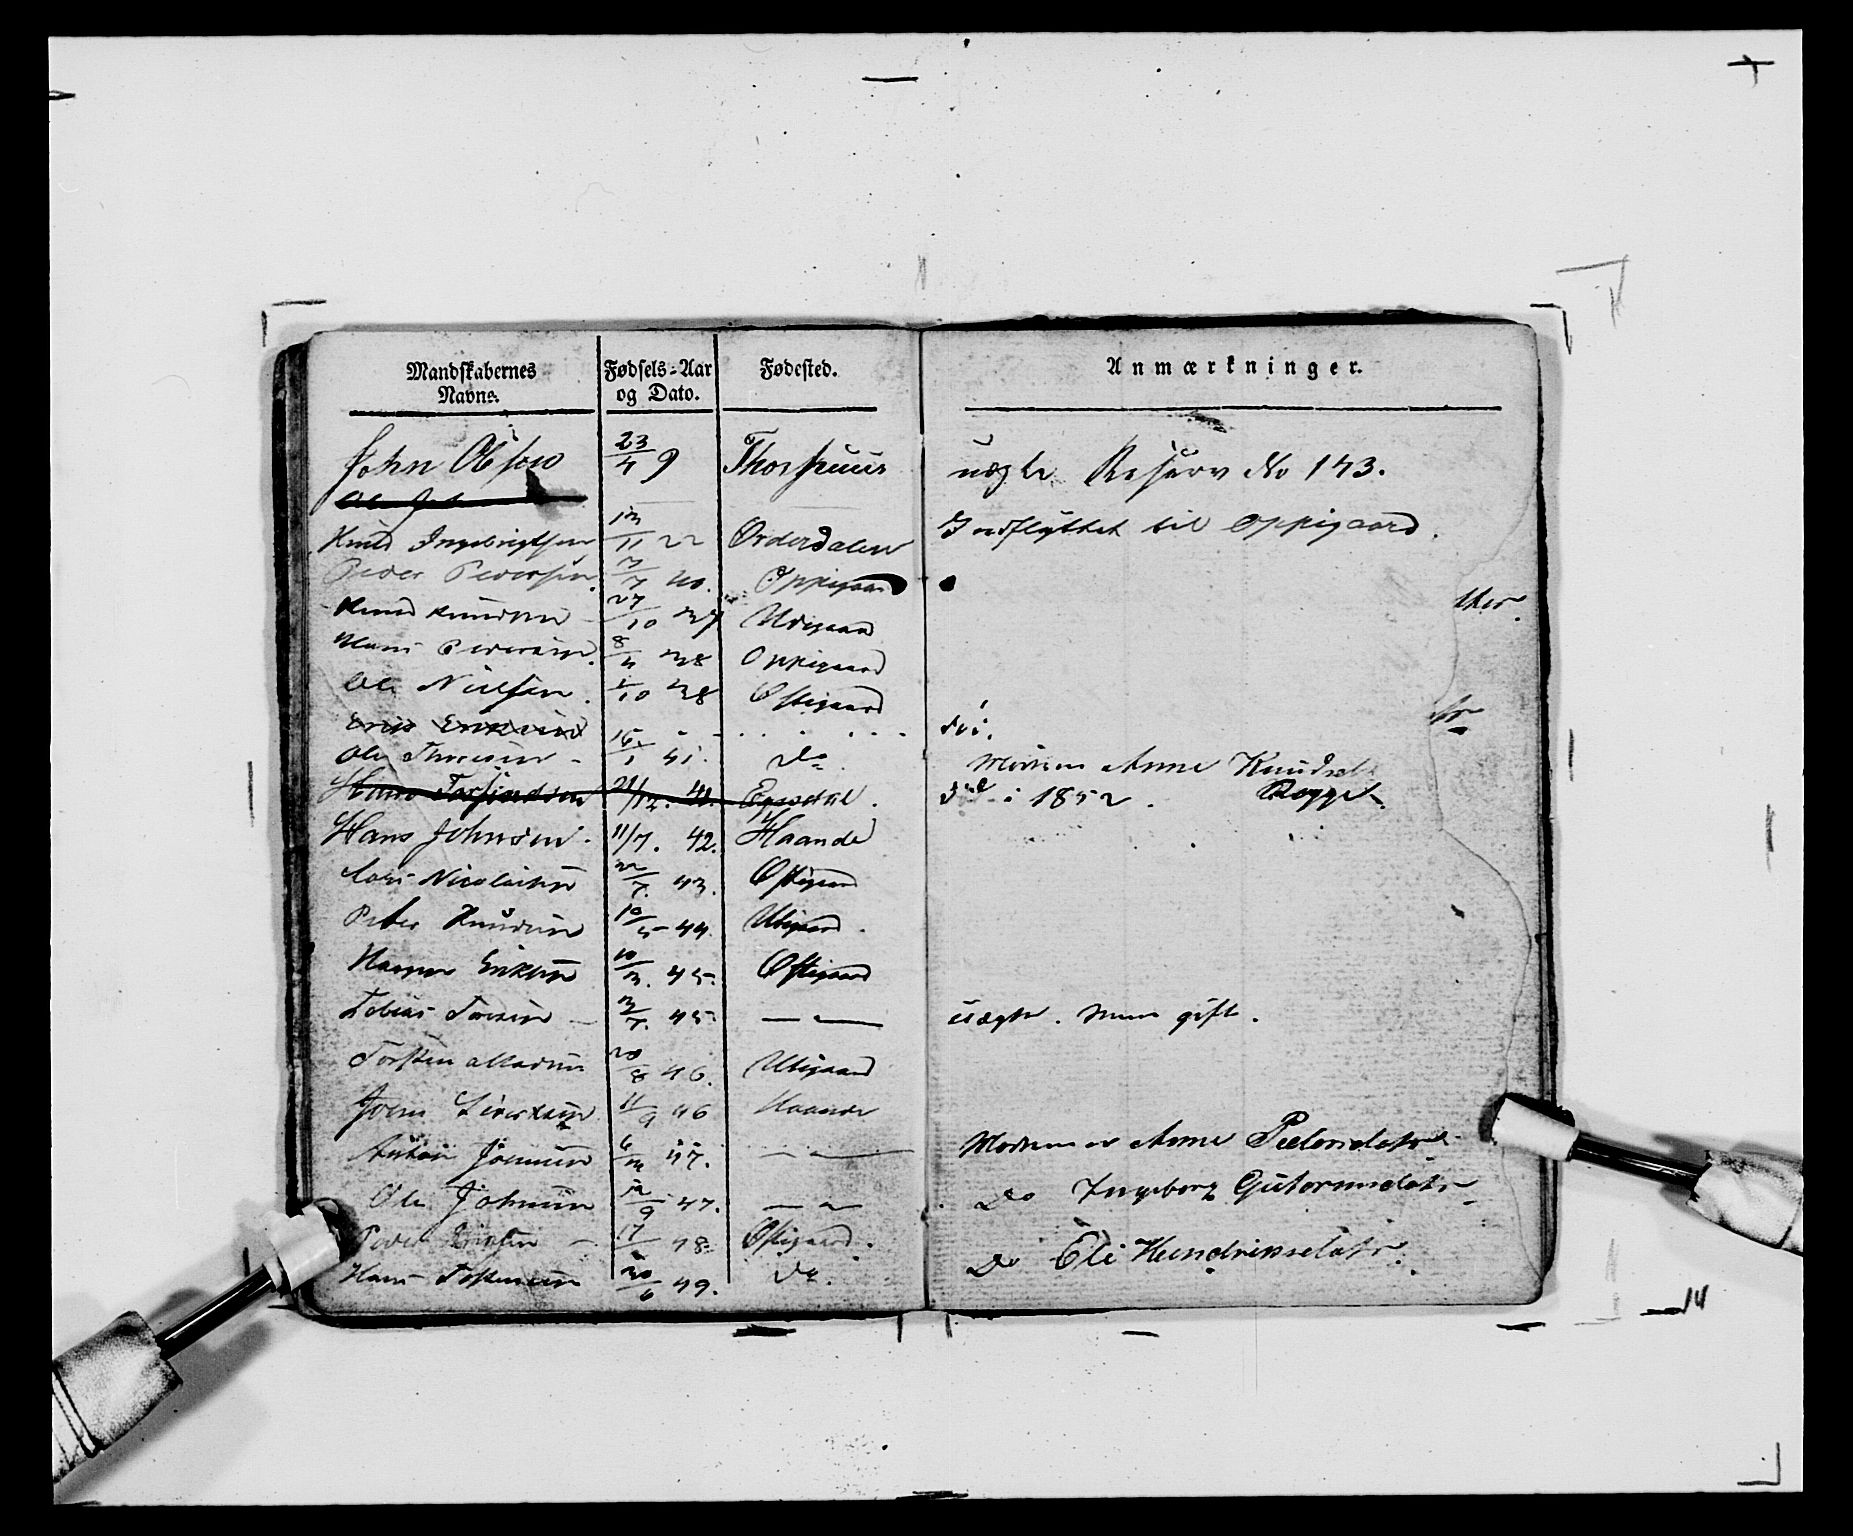 Mandskabernes Navne. Fødsels-Aar og Dato. Fødested. Anmærkninger.
John Olsen 23/4 9 Thorshuus uægte Reserv No 143.
Knud Ingebrigtsen 13/11 22 Ørderdalen Indflyttet til Oppigaard.
Peder Pedersen. Oppigaard
Knud Knudsen 27/10 37 Udigaard
Hans Pedersen. 8/4 38 Oppigaard
Ole Nielsen. 1/10 38 Østigaard
Erik Eriksen
Ole Thoresen 15/1 41. Do. Moderen Anne Knudsdt
Hans Torstensen 21/12. 41. Egsdal. død i 1852. Rogge
Hans Johnsen. 11/7. 42. Haande
Lars Nicolaisen 22/7. 43. Østigaard
Peter Knudsen 10/5 44. Utigaard.
Hans Eriksen 10/3. 45. Østigaard
Tobias Toresen 45 — — uægte. gift.
Torsten Madsen 20/8 46. Utigaard
John Siversen 11/9 46 Haande
Anton Johnsen 47. — — Moderen er Anne Pedersdatr
Ole Johnsen 12/9 47. — — Do Ingeborg Gutormsdatr
Peder 17 48. Østigaard. Do Eli Hendriksdatr.
Hans Torstensen 20/6 49. Do.
14